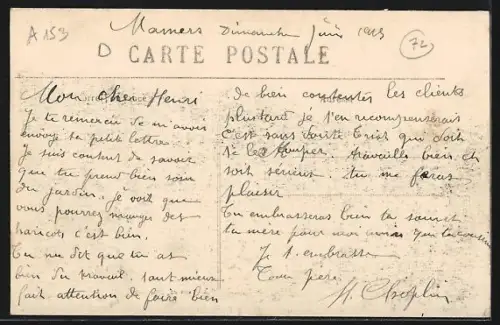 A 153
Mamers Dimanche Juin 1915
72
D CARTE POSTALE
Mon cher Henri
Je te remercie de m'avoir
envoyé ta petite lettre.
Je suis content de savoir
que tu prend bien soin
du jardin. je voit que
vous pourrez manger des
haricots c'est bien.
Tu me dit que tu as
bien du travail. tant mieux
fait attention de faire bien
de bien contenter les clients
plustard je t'en recompenserais
C'est sans doute Criot qui doit
te les couper. travaille bien et
soit serieux. tu me feras
plaisir
Tu embrasseras bien ta soeur et
ta mère pour moi
Je t'embrasse
Ton père.
H. Choplin